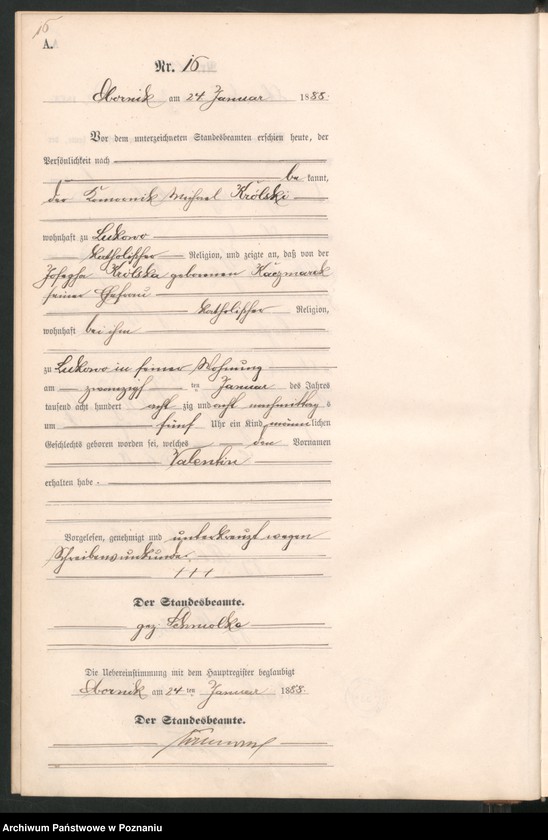 15
A.
Nr. 15
Obornik am 24 Januar 1888.
Vor dem unterzeichneten Standesbeamten erschien heute, der
Persönlichkeit nach
be kannt,
der Komornik Michael Królski
wohnhaft zu Lukowo
katholischer Religion, und zeigte an, daß von der
Josepha Królska geborenen Kaczmarek
seiner Ehefrau
katholischer Religion,
wohnhaft bei ihm
zu Lukowo in seiner Wohnung
am zwanzigsten Januar des Jahres
tausend acht hundert acht zig und acht nachmittag s
um fünf Uhr ein Kind männlichen
Geschlechts geboren worden sei, welches den Vornamen
Valentin
erhalten habe.
Vorgelesen, genehmigt und unterkreuzt wegen
Schreibensunkunde.
+++
Der Standesbeamte.
gez. Schmolke
Die Uebereinstimmung mit dem Hauptregister beglaubigt
Obornik am 24 ten Januar 1888.
Der Standesbeamte.
Archiwum Państwowe w Poznaniu